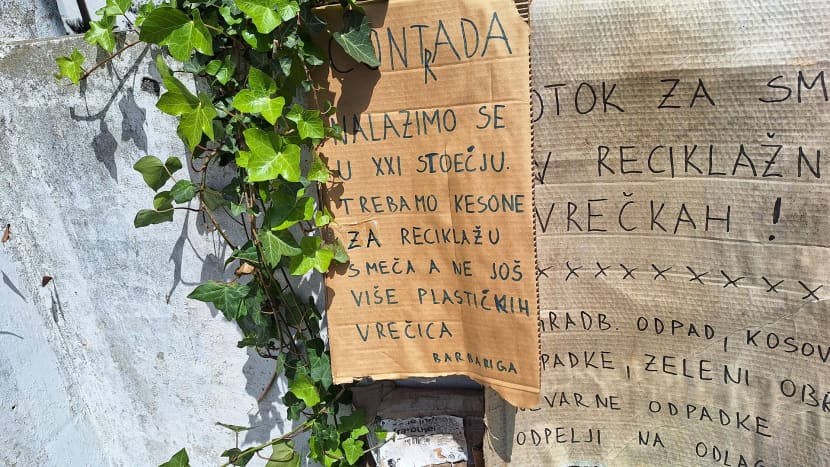 CONTRADA
NALAZIMO SE
U XXI STOEČJU.
TREBAMO KESONE
ZA RECIKLAŽU
SMEČA A NE JOŠ
VIŠE PLASTIČKIH
VREČICA
BARBARIGA
OTOK ZA SM
V RECIKLAŽN
VREČKAH !
××××××××××
GRADB. ODPAD, KOSOV
PADKE, ZELENI OBR
NEVARNE ODPADKE
ODPELJI NA ODLAG